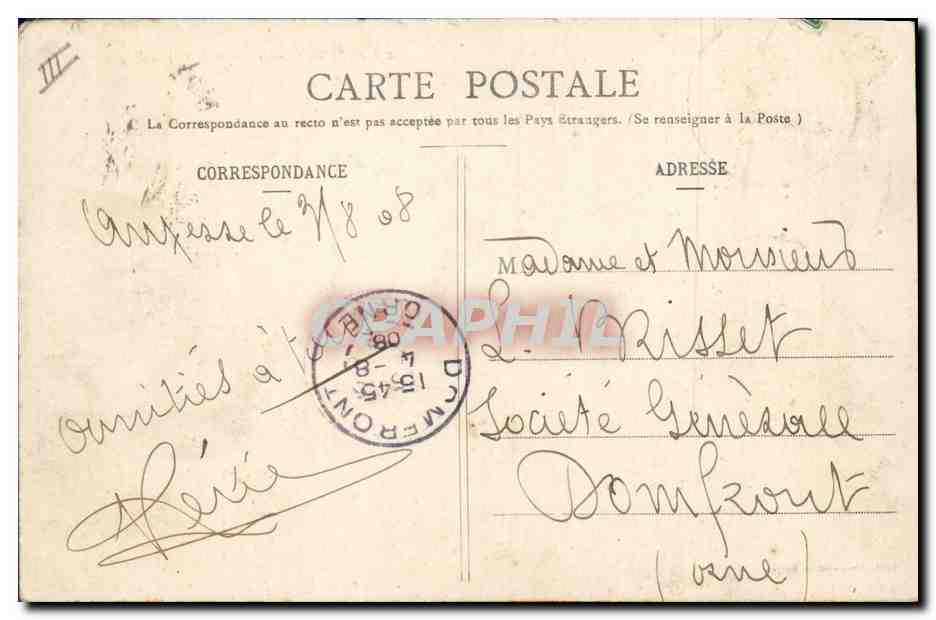 III
CARTE POSTALE
La Correspondance au recto n'est pas acceptée par tous les Pays Étrangers. (Se renseigner à la Poste)
CORRESPONDANCE
le 3/8 08
Amitiés à
ADRESSE
Madame et Monsieur
L. Risset
Société Générale
Domfront
(Orne)
DOMFRONT
ORNE
15 45
4 - 8
08
CPAPHIL